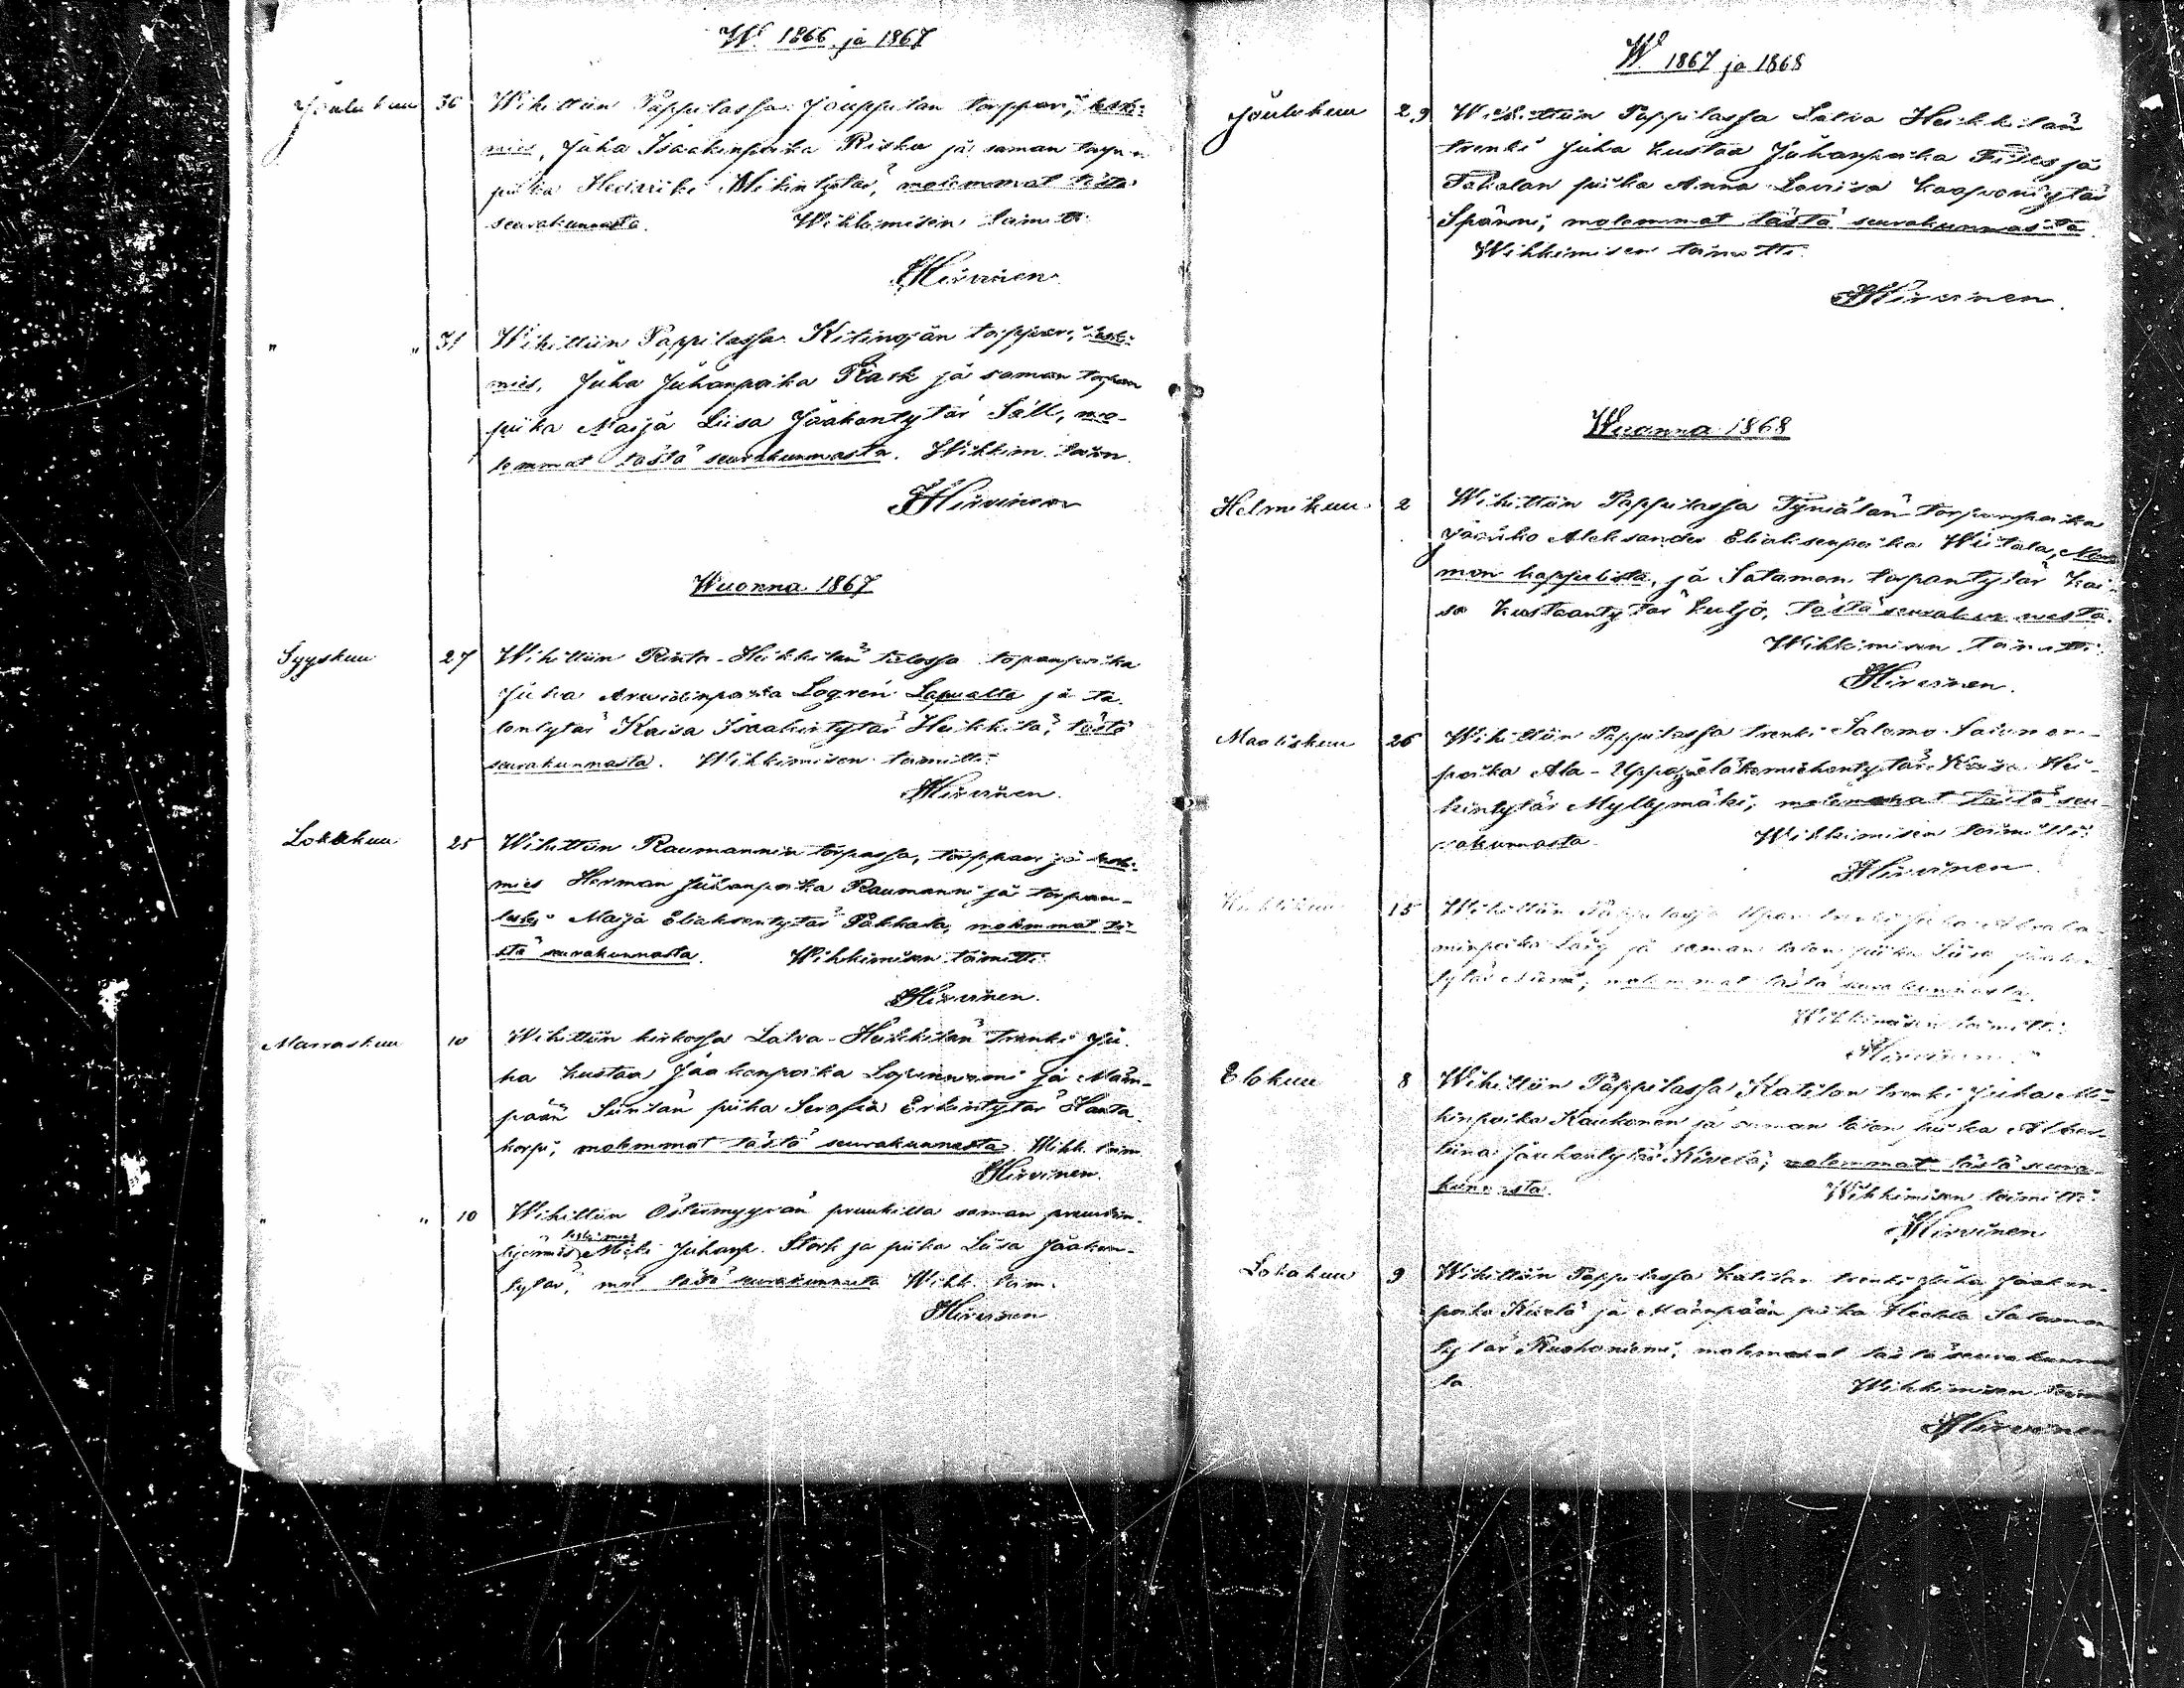 W. 1866 ja 1867
Joulukuu 30 Wihittiin Pappilassa Jouppilan torppari, lesk-
mies, Juha Isaakinpoika Risku ja saman torpan
piika Hedvviki Mikintytär, molemmat tästä
seurakunnasta. Wihkimisen toimitti
Hirvinen
" " 31 Wihittiin Pappilassa Kitinojan torppari, lesk-
mies, Juha Juhanpoika Rask ja saman torpan
piika Maija Liisa Jaakontytär Säll, mo-
lemmat tästä seurakunnasta. Wihkim. toim.
Hirvinen
Wuonna 1867
Syyskuu 27 Wihittiin Rinta-Heikkilän talossa topanpoika
Juha Arwidinpoika Logrén Lapualta ja ta-
lontytär Kaisa Isaakintytär Heikkilä, tästä
seurakunnasta. Wihkimisen toimitti
Hirvinen.
Lokakuu 25 Wihittiin Raumannin torpassa, torppari ja lesk-
mies Herman Juhanpoika Raumanni ja torpan-
leski Maija Eliaksentytär Pakkala, molemmat tä-
stä seurakunnasta. Wihkimisen toimitti
Hirvinen.
Marraskuu 10 Wihittiin kirkossa Latva-Heikkilän trenki Ju-
ha Kustaa Jaakonpoika ja Mään-
pään Siirilän piika Serafia Erkintytär Hanta-
korpi, molemmat tästä seurakunnasta. Wihk. toim.
Hirvinen.
" " 10 Wihittiin Östermyyrän pruukilla saman pruukin
leskimies
Juhanp. Stork ja piika Liisa Jaakon-
tytär, mol. tästä seurakunnasta Wihk. toim.
Hirvinen
W. 1867 ja 1868
Joulukuu 29 Wihittiin Pappilassa Latva Heikkilän
trenki Juha Kustaa Juhanpoika ja
piika Anna Lovisa Kaaponytär
Spänni, molemmat tästä seurakunnasta.
Wihkimisen toimitti
Hirvinen.
Wuonna 1868
Helmikuu 2 Wihittiin Pappilassa Tyniälän torpanpoika
Jaakko Aleksander Eliaksenpoika Wiitala,
mon kappelista, ja Sataman torpantytär Kai-
sa Kustaantytär Kuljo, tästä seurakunnasta.
Wihkimisen toimitti
Hirvinen.
Maaliskuu 26 Wihittiin Pappilassa trenki Salomo Saiomon-
poika Ala-Uppa ja eläkemiehentytär Kaisa Hei-
kintytär Myllymäki, molemmat tästä seu-
rakunnasta. Wihkimisen toimitti
Hirvinen
Huhtikuu 15 Wihittiin Pappilassa trenki Juha Abraha-
minpoika ja saman talon piika Liisa Jaakon-
tytär Niemi, molemmat tästä seurakunnasta.
Wihkimisen toimitti
Hirvinen
Elokuu 8 Wihittiin Pappilassa Katilan trenki Juha Mi-
kinpoika Kaukonen ja saman talon piika Alber-
tiina Jaakontytär Kivelä, molemmat tästä seura-
kunnasta. Wihkimisen toimitti
Hirvinen
Lokakuu 9 Wihittiin Pappilassa Katilan trenki Juha Jaakon-
poika ja Määnpään piika Hedda Salomon-
tytär Ruohoniemi, molemmat tästä seurakunnas-
ta. Wihkimisen toim
Hirvinen